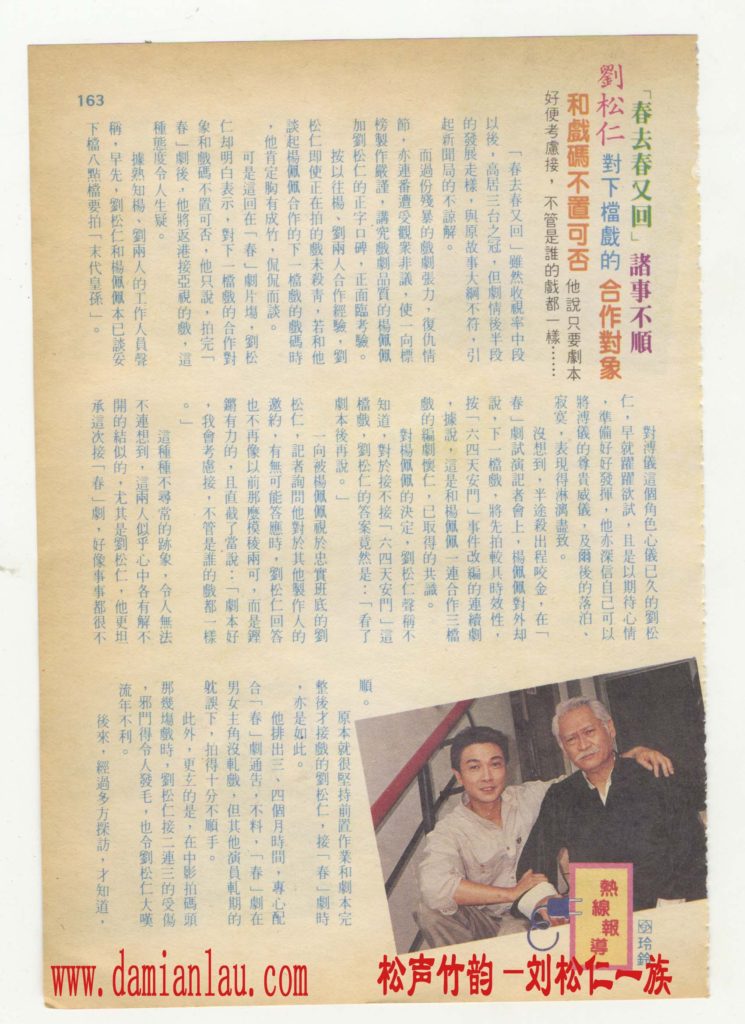 「春去春又回」諸事不順
劉松仁 對下檔戲的 合作對象
和戲碼不置可否 他說只要劇本
好便考慮接，不管是誰的戲都一樣……
163
「春去春又回」雖然收視率中段
以後，高居三台之冠，但劇情後半段
的發展走樣，與原故事大綱不符，引
起新聞局的不諒解。
而過份殘暴的戲劇張力，復仇情
節，亦連番遭受觀衆非議，使一向標
榜製作嚴謹，講究戲劇品質的楊佩佩
加劉松仁的正字口碑，正面臨考驗。
按以往楊、劉兩人合作經驗，劉
松仁即使正在拍的戲未殺青，若和他
談起楊佩佩合作的下一檔戲的戲碼時
，他肯定胸有成竹，侃侃而談。
可是這回在「春」劇片塲，劉松
仁却明白表示，對下一檔戲的合作對
象和戲碼不置可否，他只說，拍完「
春」劇後，他將返港接亞視的戲，這
種態度令人生疑。
據熟知楊、劉兩人的工作人員聲
稱，早先，劉松仁和楊佩佩本已談妥
下檔八點檔要拍「末代皇孫」。
對溥儀這個角色心儀已久的劉松
仁，早就躍躍欲試，且是以期待心情
，準備好好發揮，他亦深信自己可以
將溥儀的尊貴威儀，及爾後的落泊、
寂寞，表現得淋漓盡致。
沒想到，半途殺出程咬金，在「
春」劇試演記者會上，楊佩佩對外却
說，下一檔戲，將先拍較具時效性，
按「六四天安門」事件改編的連續劇
，據說，這是和楊佩佩一連合作三檔
戲的編劇懷仁，已取得的共識。
對楊佩佩的決定，劉松仁聲稱不
知道，對於接不接「六四天安門」這
檔戲，劉松仁的答案竟然是：「看了
劇本後再說。」
一向被楊佩佩視於忠實班底的劉
松仁，記者詢問他對於其他製作人的
邀約，有無可能答應時，劉松仁回答
也不再像以前那麼模稜兩可，而是鏗
鏘有力的，且直截了當說：「劇本好
，我會考慮接，不管是誰的戲都一樣
。」
這種種不尋常的跡象，令人無法
不連想到，這兩人似乎心中各有解不
開的結似的，尤其是劉松仁，他更坦
承這次接「春」劇，好像事事都很不
順。
原本就很堅持前置作業和劇本完
整後才接戲的劉松仁，接「春」劇時
，亦是如此。
他排出三、四個月時間，專心配
合「春」劇通告，不料，「春」劇在
男女主角沒軋戲，但其他演員軋期的
躭誤下，拍得十分不順手。
此外，更玄的是，在中影拍碼頭
那幾塲戲時，劉松仁接二連三的受傷
，邪門得令人發毛，也令劉松仁大嘆
流年不利。
後來，經過多方探訪，才知道，
熱線報導
玲鈴
www.damianlau.com
松声竹韵－刘松仁一族